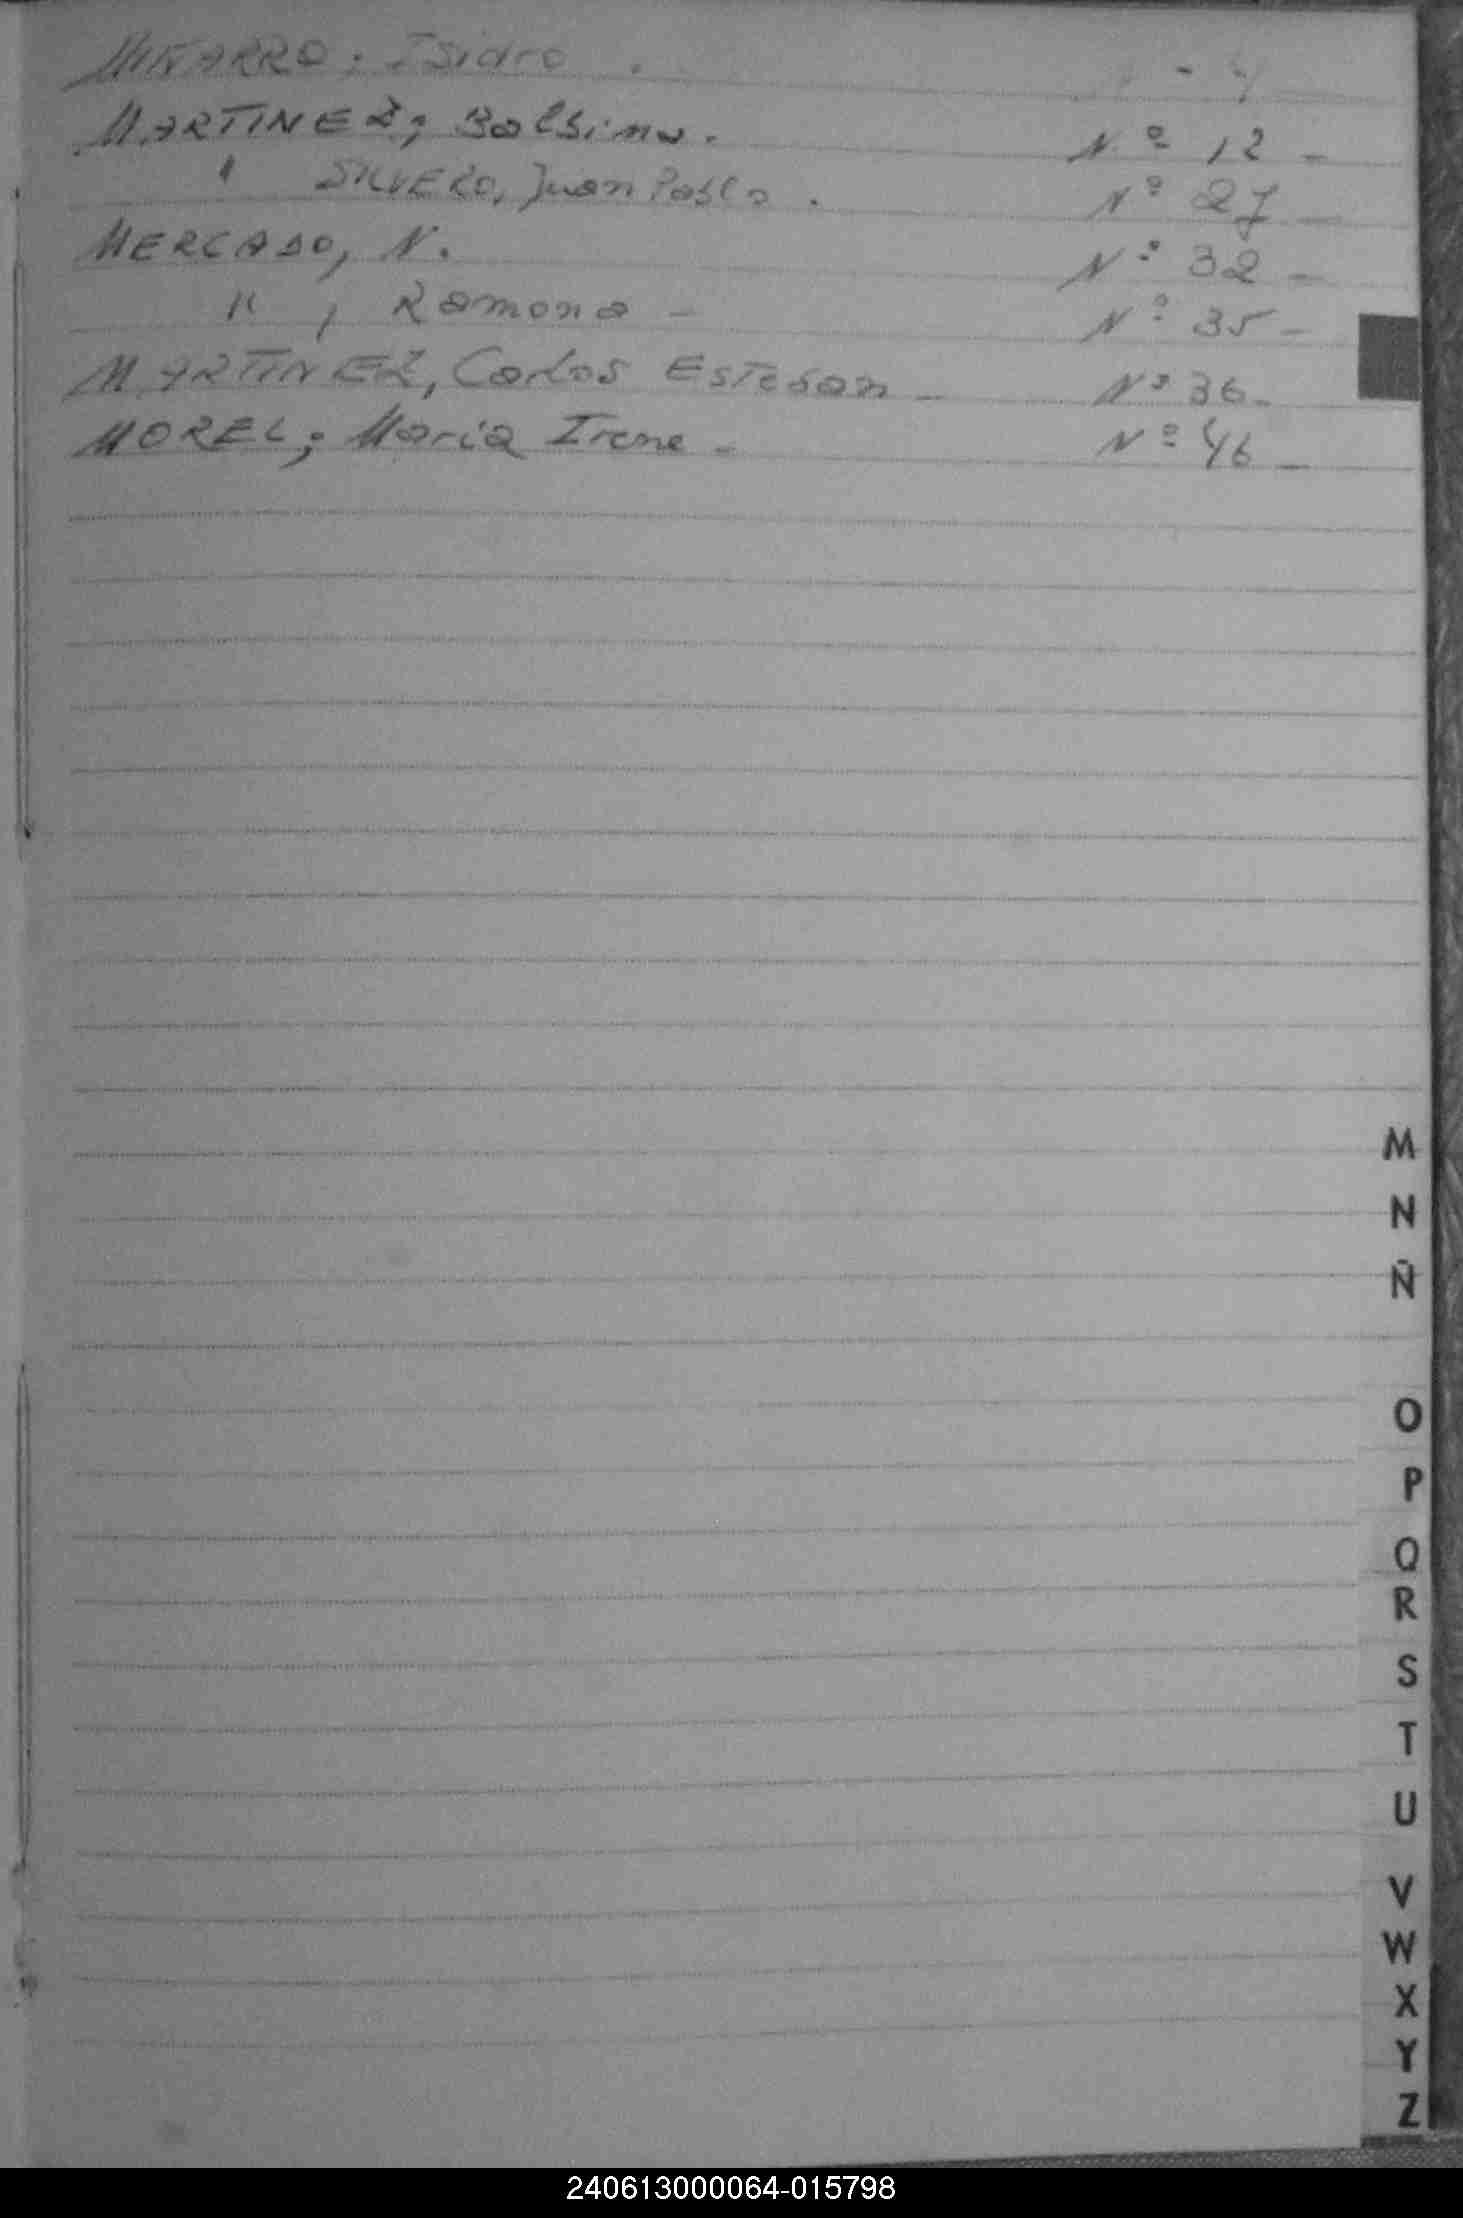 MIÑARRO, Isidro . - 4
MARTINEZ, Balbina. Nº 12 -
" SILVERO, Juan Pablo . Nº 27 -
MERCADO, N. Nº 32 -
" , Ramona - Nº 35 -
MARTINEZ, Carlos Esteban - Nº 36 -
MOREL, Maria Irene - Nº 46 -
M
N
Ñ
O
P
Q
R
S
T
U
V
W
X
Y
Z
240613000064-015798